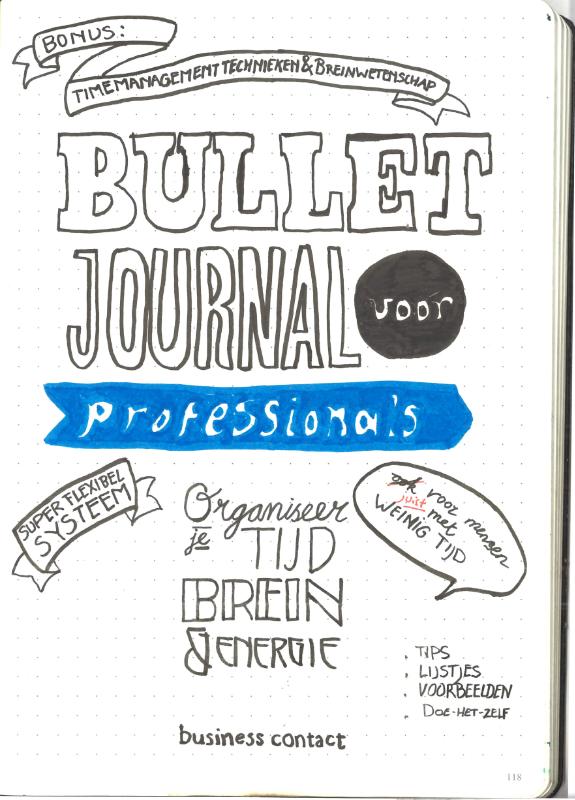 BONUS:
TIMEMANAGEMENT TECHNIEKEN & BREINWETENSCHAP
BULLET
JOURNAL
voor
professional's
SUPER FLEXIBEL
SYSTEEM
Organiseer
je TIJD
BREIN
& ENERGIE
ook voor mensen
juist met
WEINIG TIJD
. TIPS
. LIJSTJES
. VOORBEELDEN
. DOE-HET-ZELF
business contact
118